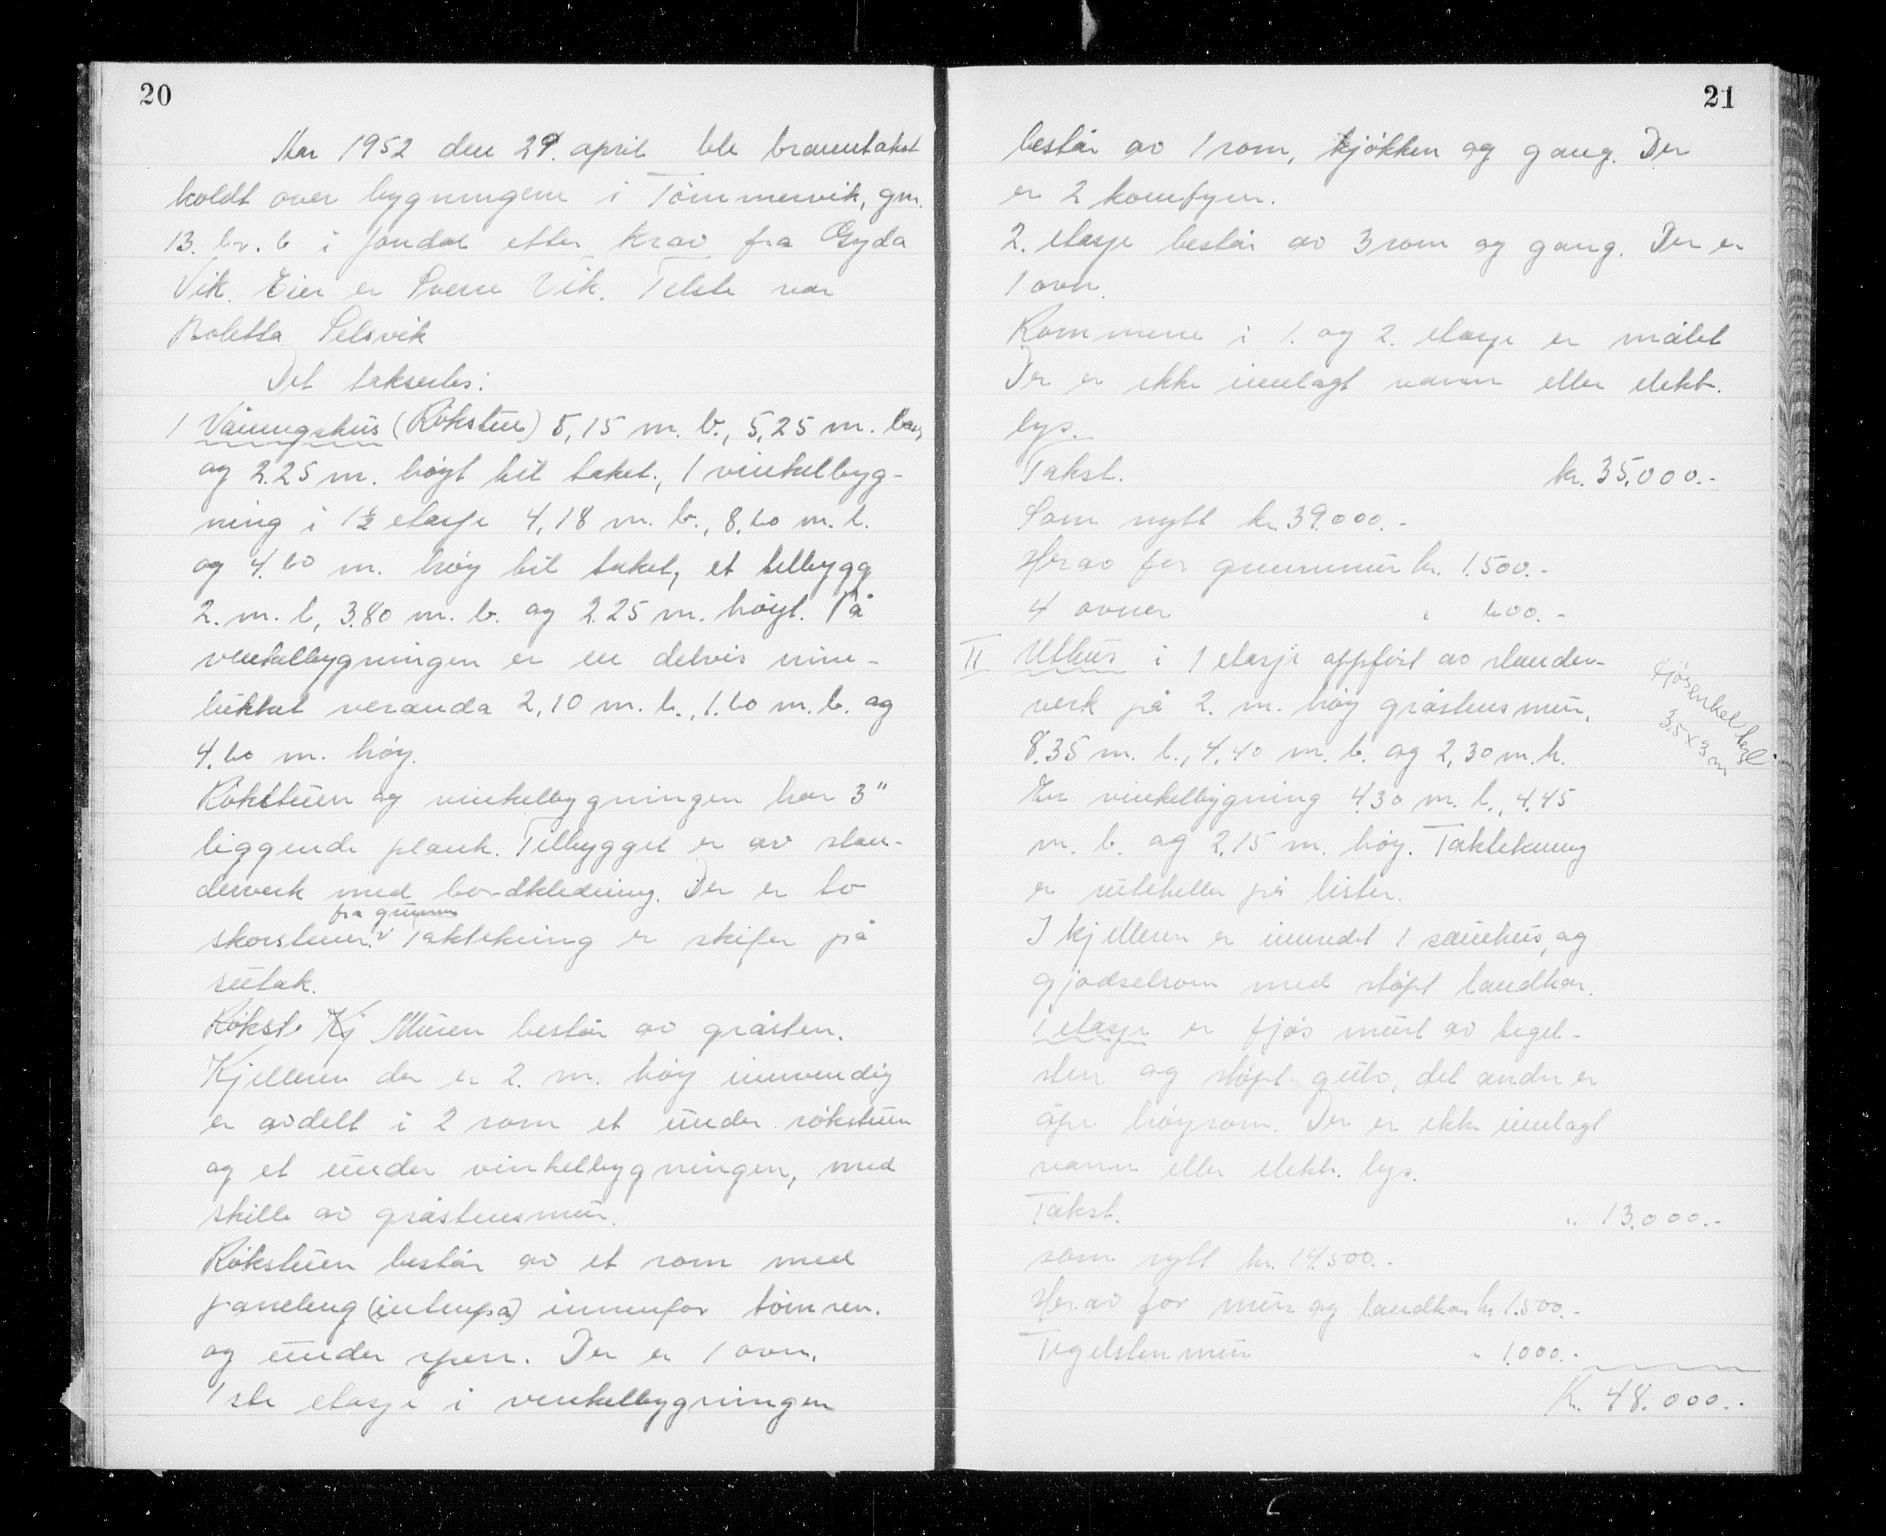 20
Aar 1952 den 29. april ble branntakst
holdt over bygningene i Tömmervik, gnr.
13. br. 6 i Jondal etter krav fra Gyda
Vik. Eier er Sverre Vik. Tilste var
Boletta Selsvik
Det taksertes:
1 Våningshus (Rökstue) 5,15 m. b., 5,25 m. lang
og 2.25 m. høyt til taket., 1 vinkelbyg-
ning i 1½ etasje 4,18 m. b., 8,60 m. l.
og 4.60 m. høy til taket, et tilbygg
2. m. l, 3.80 m. b. og 2.25 m. høyt. På
vinkelbygningen er en delvis inne-
lukket veranda 2,10 m. l., 1.60 m. b. og
4.60 m. høy.
Rökstuen og vinkelbygningen har 3"
liggende plank. Tilbygget er av sten-
derverk med bordkledning. Der er to
fra grunnen
skorstener. Taktekning er skifer på
sutak.
Rökst Kj Muren består av gråsten.
Kjelleren der er 2. m. høy innvendig
er avdelt i 2 rom et under rökstuen
og et under vinkelbygningen, med
skille av gråstensmur.
Rökstuen består av et rom med
paneling innenfor tömren.
og under sperr. Der er 1 ovn.
1ste etasje i vinkelbygningen
21
består av 1 rom, kjökken og gang. Der
er 2 komfyrer.
2. etasje består av 3 rom og gang. Der er
1 ovn.
Rommene i 1. og 2. etasje er målet
Der er ikke innlagt vann eller elektr.
lys.
Takst. kr. 35.000.-
Som nytt kr. 39.000.-
Herav for grunnmur kr. 1.500.-
4 ovner " 600.-
II Uthus i 1 etasje oppfört av stender-
verk på 2. m. høy gråstensmur,
8.35 m. l., 4,40 m. b. og 2,30 m. h.
En vinkelbygning 4.30 m. l., 4,45
m. b. og 2,15 m. høy. Taktekning
er ruteheller på lister.
I kjelleren er innredet 1 sauehus, og
gjødselrom med støpt landkar.
1 etasje er fjøs murt av tegel-
sten og støpt gulv, det andre er
åpe høyrom. Der er ikke innlagt
vann eller elektr. lys.
Takst. " 13.000.-
som nytt kr. 14.500.-
Herav for mur og landkar kr 1.500.-
Tegelstenmur " 1.000.-
Kr. 48.000.-
Fjös enkel tegl.
3.5 x 3 m